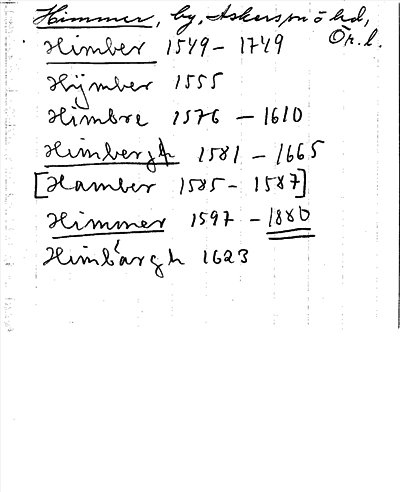 Himmer, by, Askers sn ö hd,
Ör. l.
Himber 1549 - 1749
Hÿmber 1555
Himbre 1576 - 1610
Himbergh 1581 - 1665
[Hamber 1585 - 1587]
Himmer 1597 - 1880
Himbargh 1623